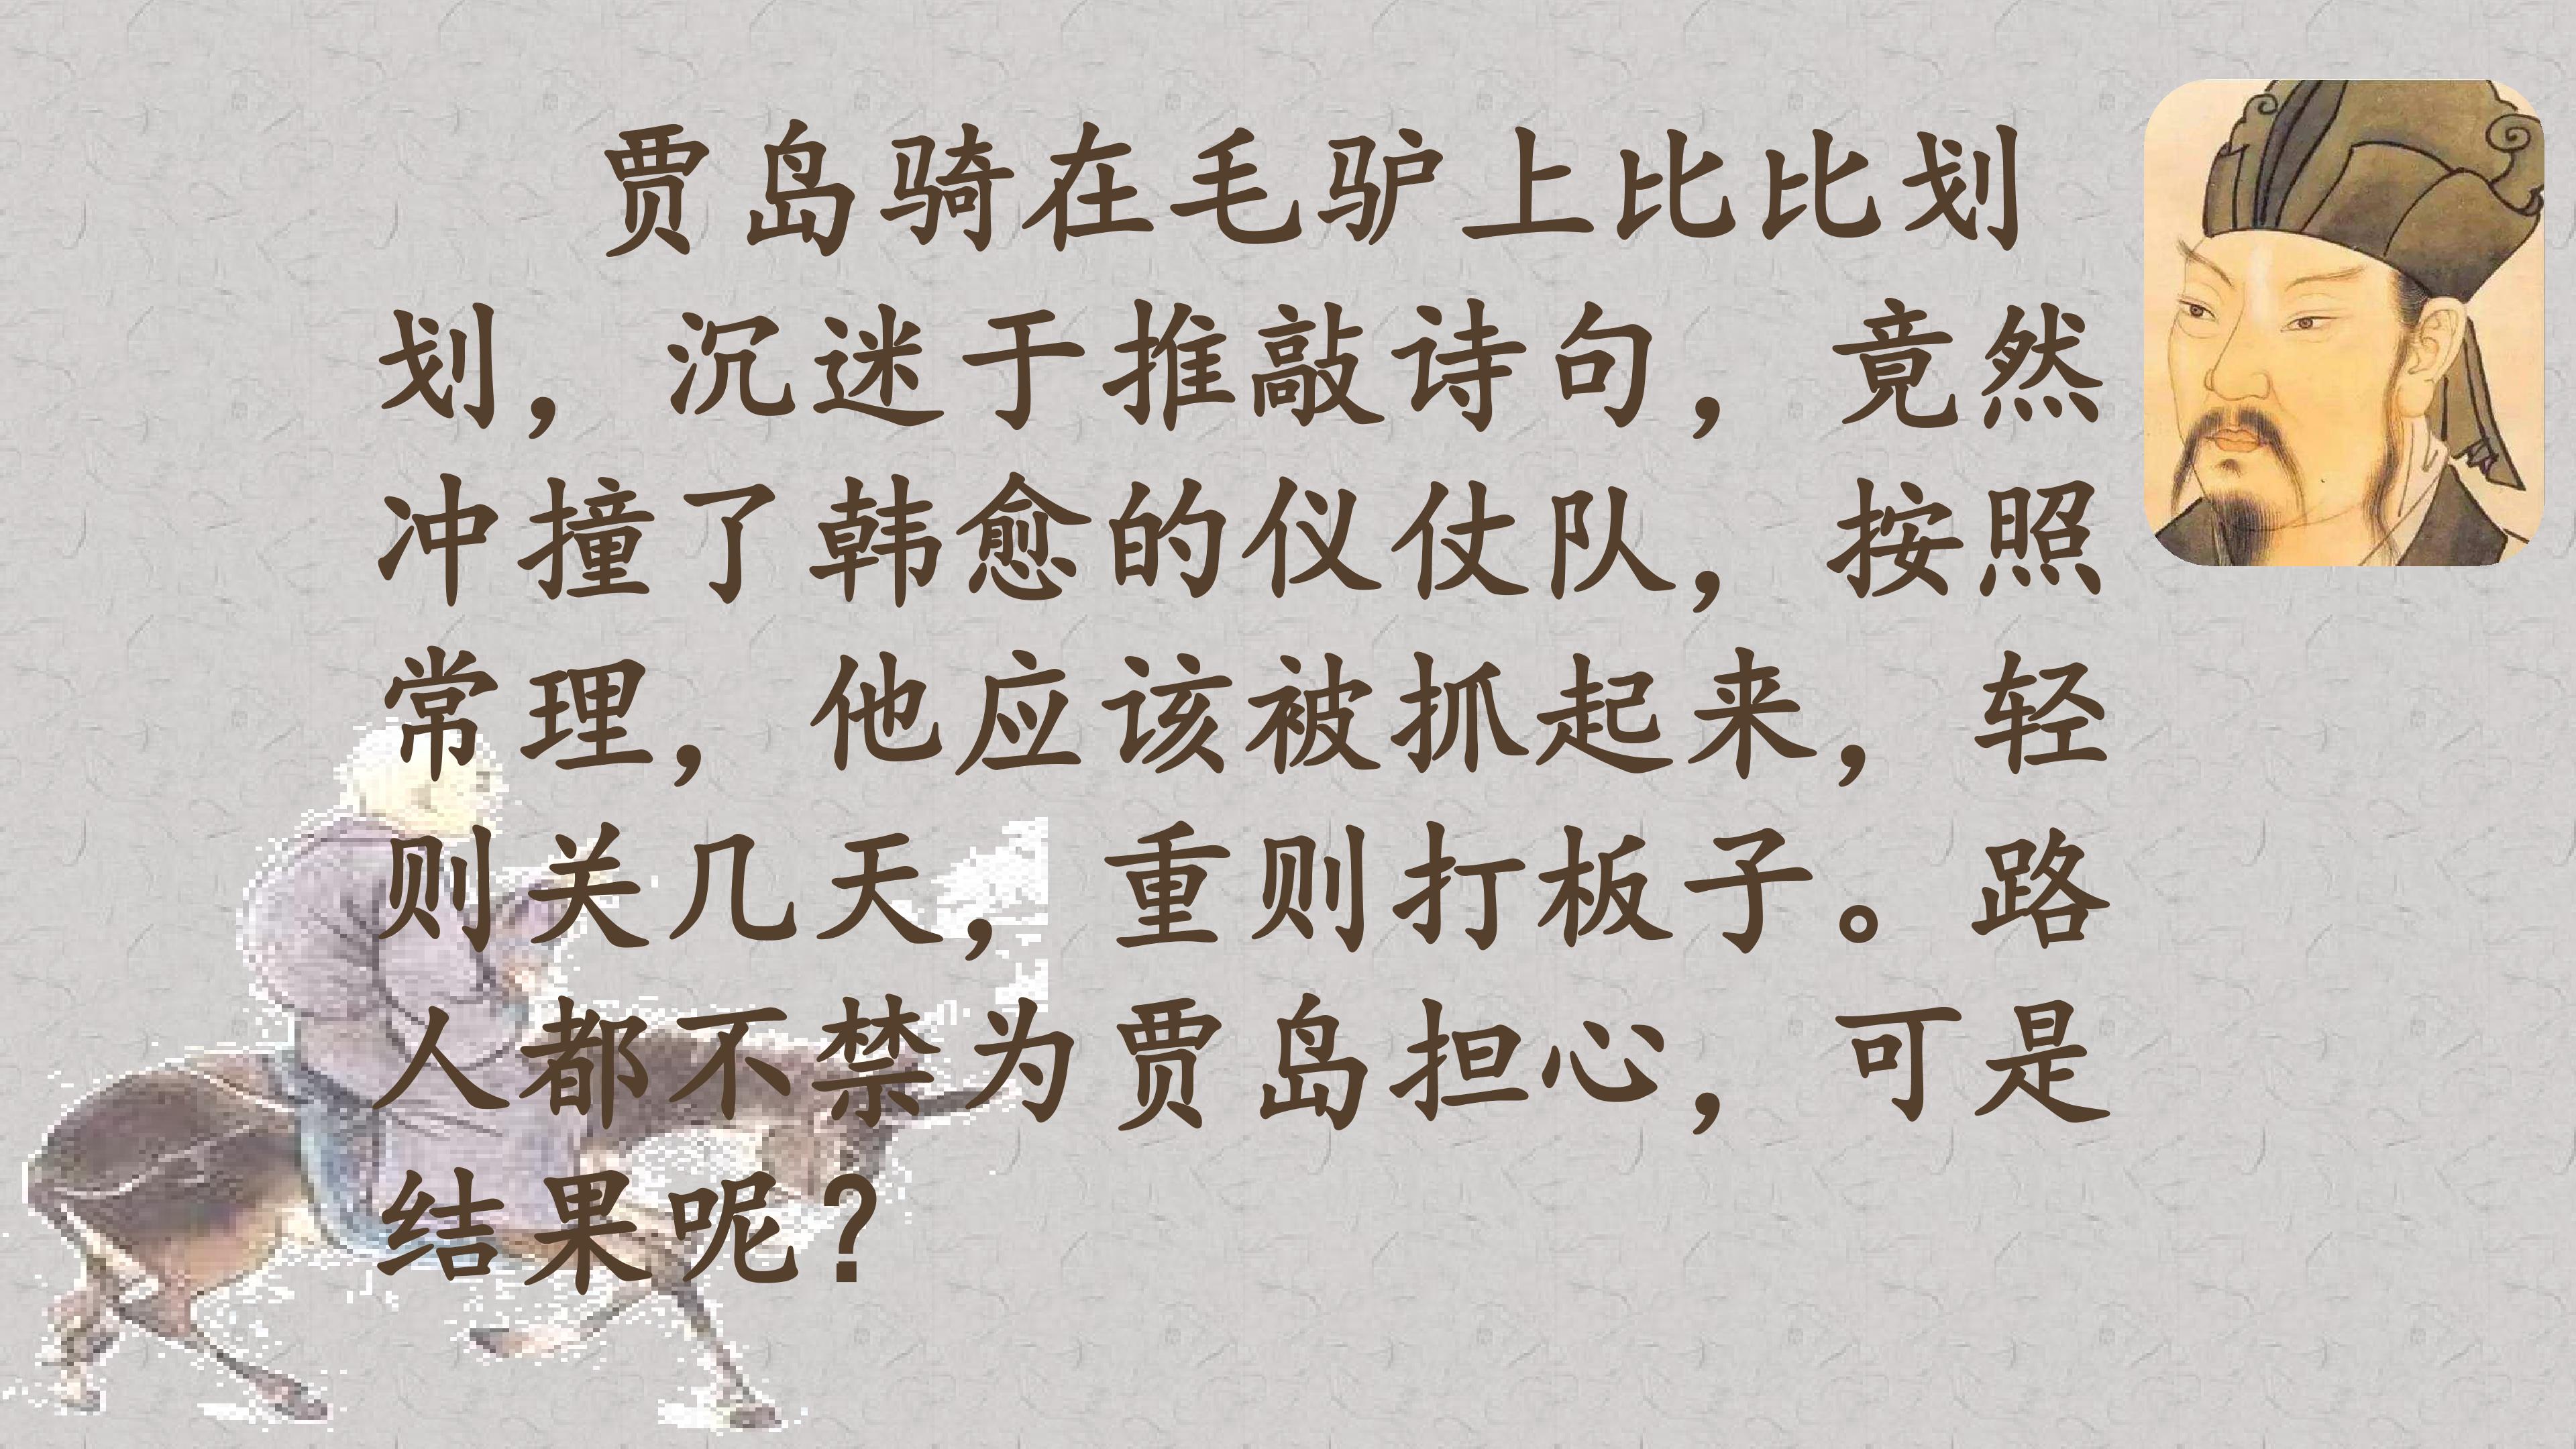 贾岛骑在毛驴上比比划
划，沉迷于推敲诗句，竟然
冲撞了韩愈的仪仗队，按照
常理，他应该被抓起来，轻
则关几天，重则打板子。路
人都不禁为贾岛担心，可是
结果呢？